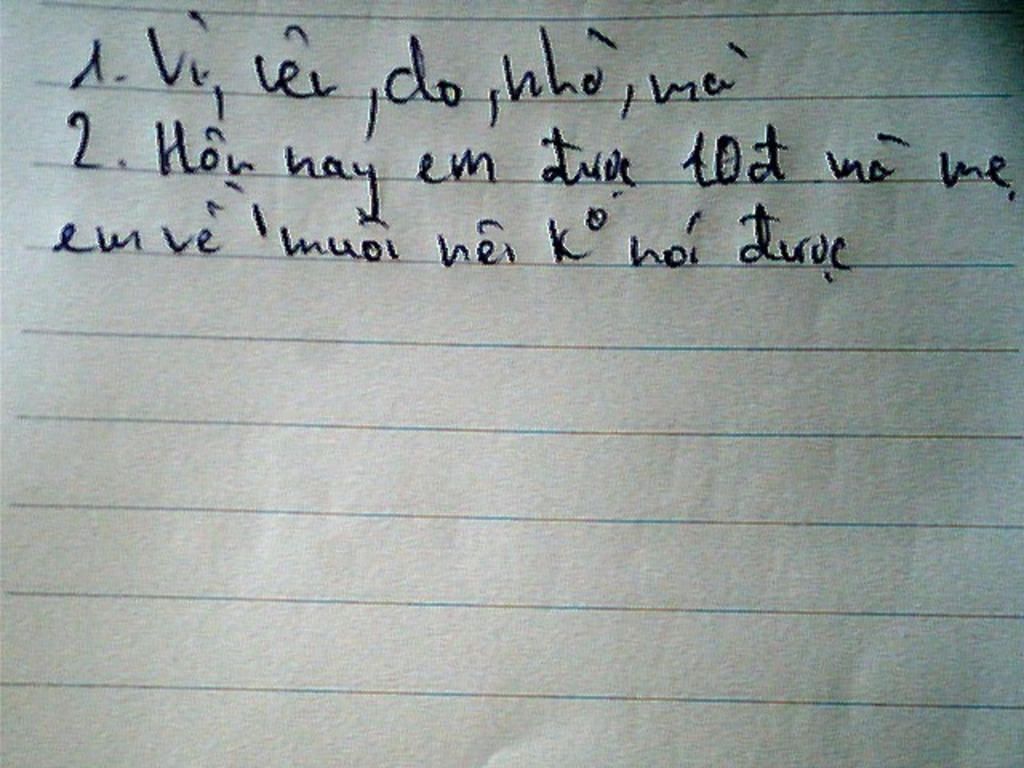 1. Vì, nên, do, nhờ, mà
2. Hôm nay em được 10đ mà mẹ
em về muồi nên k° nói được